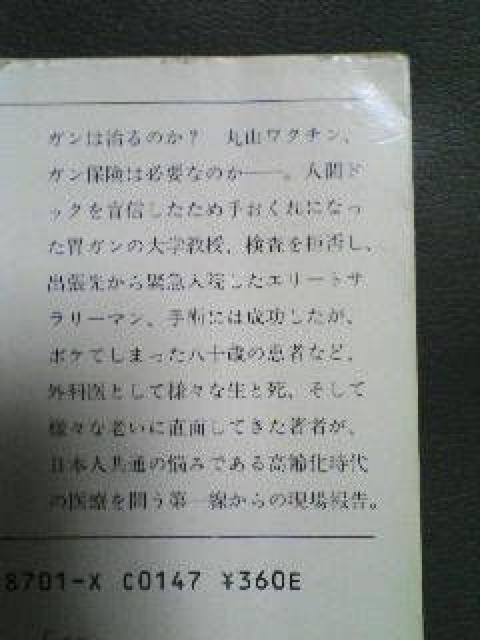 ガンは治るのか？　丸山ワクチン、
ガン保険は必要なのか――。人間ド
ックを盲信したため手おくれになっ
た胃ガンの大学教授、検査を拒否し、
出張先から緊急入院したエリートサ
ラリーマン、手術には成功したが、
ボケてしまった八十歳の患者など、
外科医として様々な生と死、そして
様々な老いに直面してきた著者が、
日本人共通の悩みである高齢化時代
の医療を問う第一線からの現場報告。
8701-X C0147 ¥360E